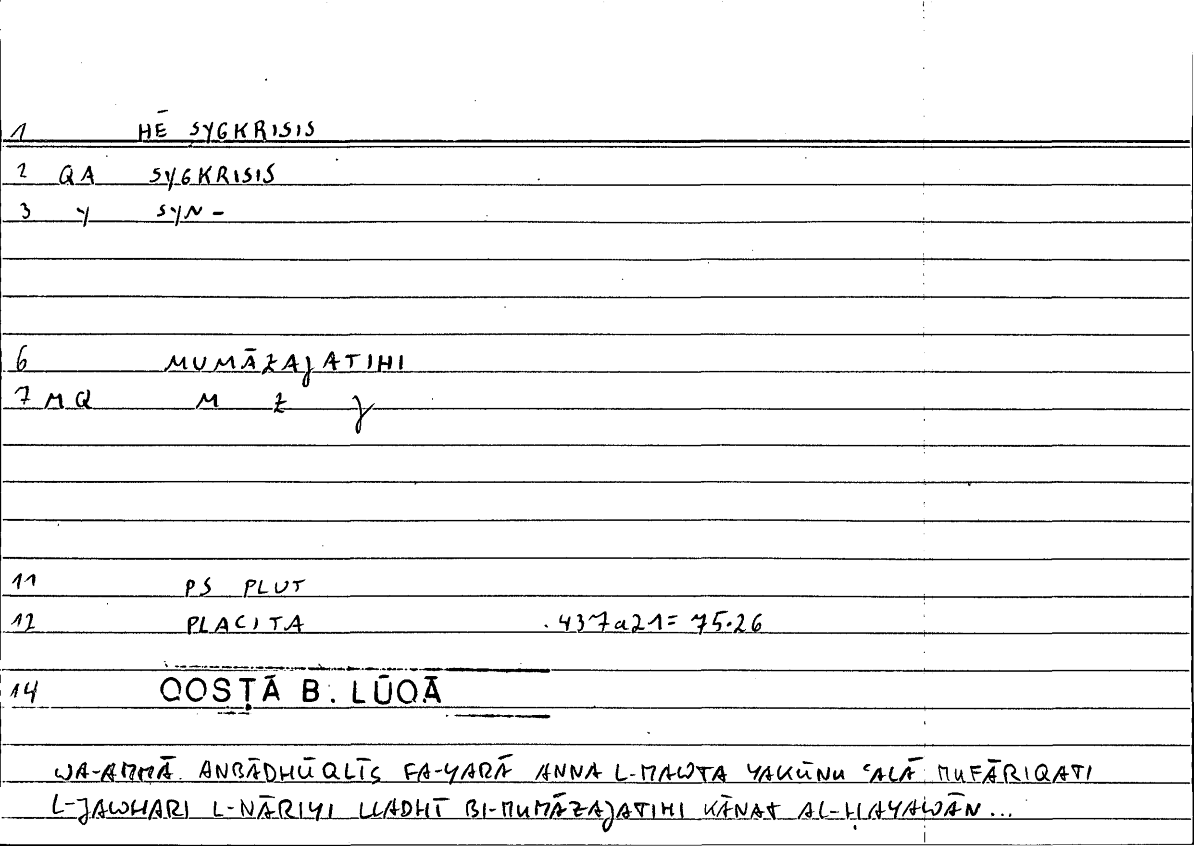 1 HĒ SYGKRISIS
2 QA SYGKRISIS
3 Y SYN-
6 MUMĀZAJATIHI
7 MQ M Z J
11 PS PLUT
12 PLACITA .437a21=75.26
14 QOSṬĀ B. LŪQĀ
WA-AMMĀ ANBĀDHŪQLĪS FA-YARĀ ANNA L-MAWTA YAKŪNU ʿALĀ MUFĀRIQATI
L-JAWHARI L-NĀRIYI LLADHĪ BI-MUMĀZAJATIHI KĀNAT AL-ḤAYAWĀN...